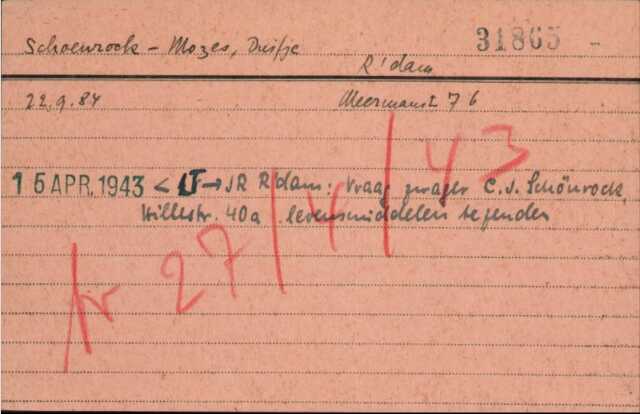 Schoenrock - Mozes, Duifje
31865 -
R'dam
22.9.84
Meermanstr 76
15 APR. 1943 < LT → JR R'dam: Vraag zwager C. J. Schönrock,
Killestr. 40a levensmiddelen te zenden
tr 27/4/43